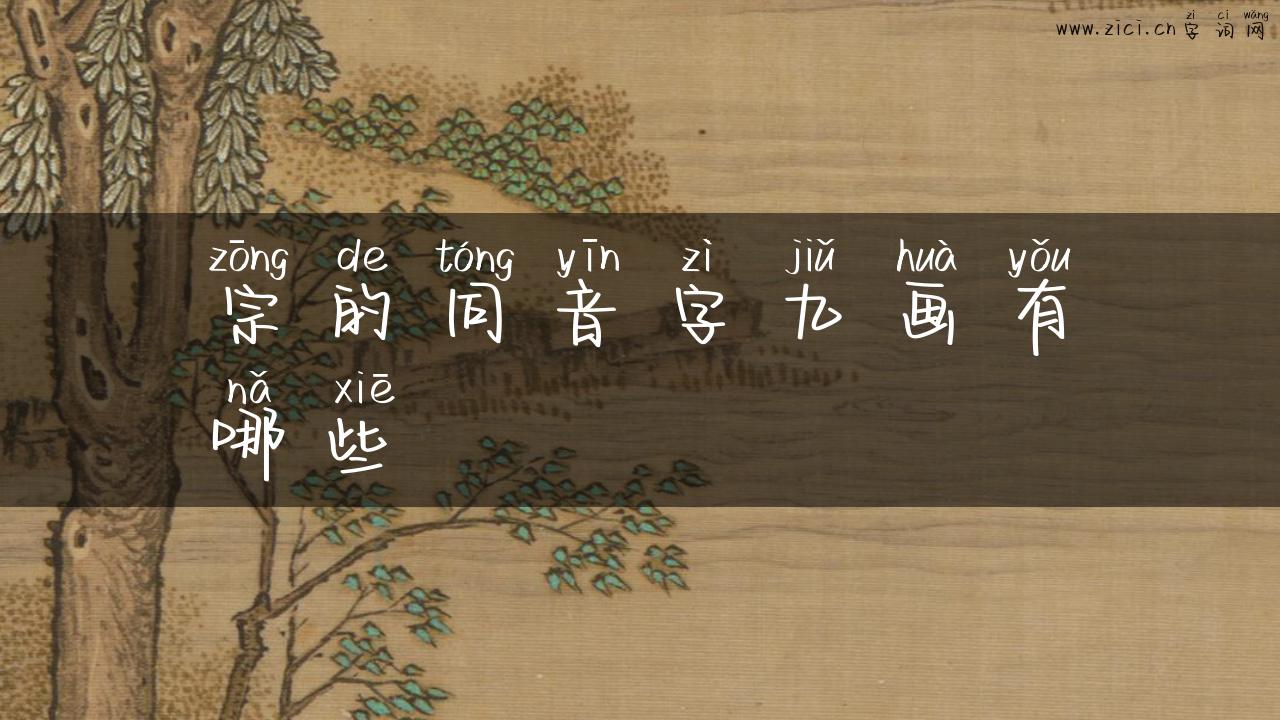 zì cí wǎng
www.zici.cn 字词网
zōng de tóng yīn zì jiǔ huà yǒu
宗的同音字九画有
nǎ xiē
哪些